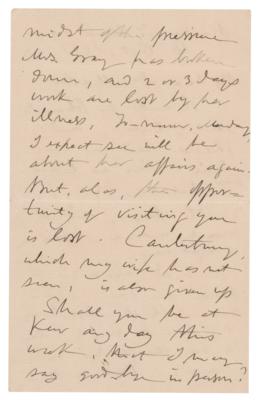 midst of the pressure
Mrs Gray has broken
down, and 2 or 3 days
work are lost by her
illness. To-morrow, Monday
I expect she will be
about her affairs again.
But, alas, the oppor-
tunity of visiting you
is lost. Canterbury,
which my wife has not
seen, is also given up
Shall you be at
Kew any day this
week, that I may
say good-bye in person?